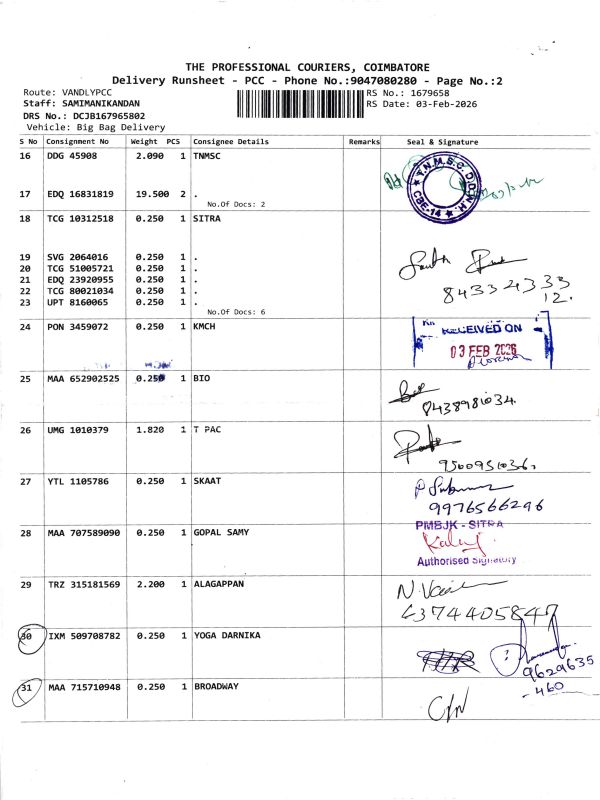 THE PROFESSIONAL COURIERS, COIMBATORE
Delivery Runsheet - PCC - Phone No.:9047080280 - Page No.:2
Route: VANDLYPCC
RS No.: 1679658
Staff: SAMIMANIKANDAN
RS Date: 03-Feb-2026
DRS No.: DCJB167965802
Vehicle: Big Bag Delivery
S No Consignment No Weight PCS Consignee Details Remarks Seal & Signature
16 DDG 45908 2.090 1 TNMSC
T.N.M.S.C. D.D.W.H.
CBE-14
17 EDQ 16831819 19.500 2 .
No.Of Docs: 2
18 TCG 10312518 0.250 1 SITRA
19 SVG 2064016 0.250 1 .
20 TCG 51005721 0.250 1 .
21 EDQ 23920955 0.250 1 .
22 TCG 80021034 0.250 1 .
23 UPT 8160065 0.250 1 .
843324333
12.
No.Of Docs: 6
24 PON 3459072 0.250 1 KMCH
RECEIVED ON
03 FEB 2026
25 MAA 652902525 0.250 1 BIO
8438981034.
26 UMG 1010379 1.820 1 T PAC
9500951036.
27 YTL 1105786 0.250 1 SKAAT
9976566296
28 MAA 707589090 0.250 1 GOPAL SAMY
PMBJK - SITRA
Authorised Signatory
29 TRZ 315181569 2.200 1 ALAGAPPAN
6374405847
30 IXM 509708782 0.250 1 YOGA DARNIKA
9629635
-460
31 MAA 715710948 0.250 1 BROADWAY